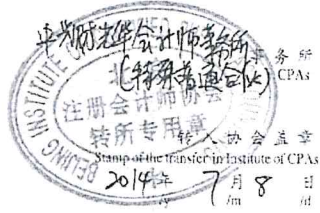 中兴财光华会计师事务所
(特殊普通合伙)
事务所
CPAs
BEIJING INSTITUTE OF
北
注册会计师协会
转所专用章
转入协会盖章
Stamp of the transfer-in Institute of CPAs
2014年 7月 8日
/y /m /d